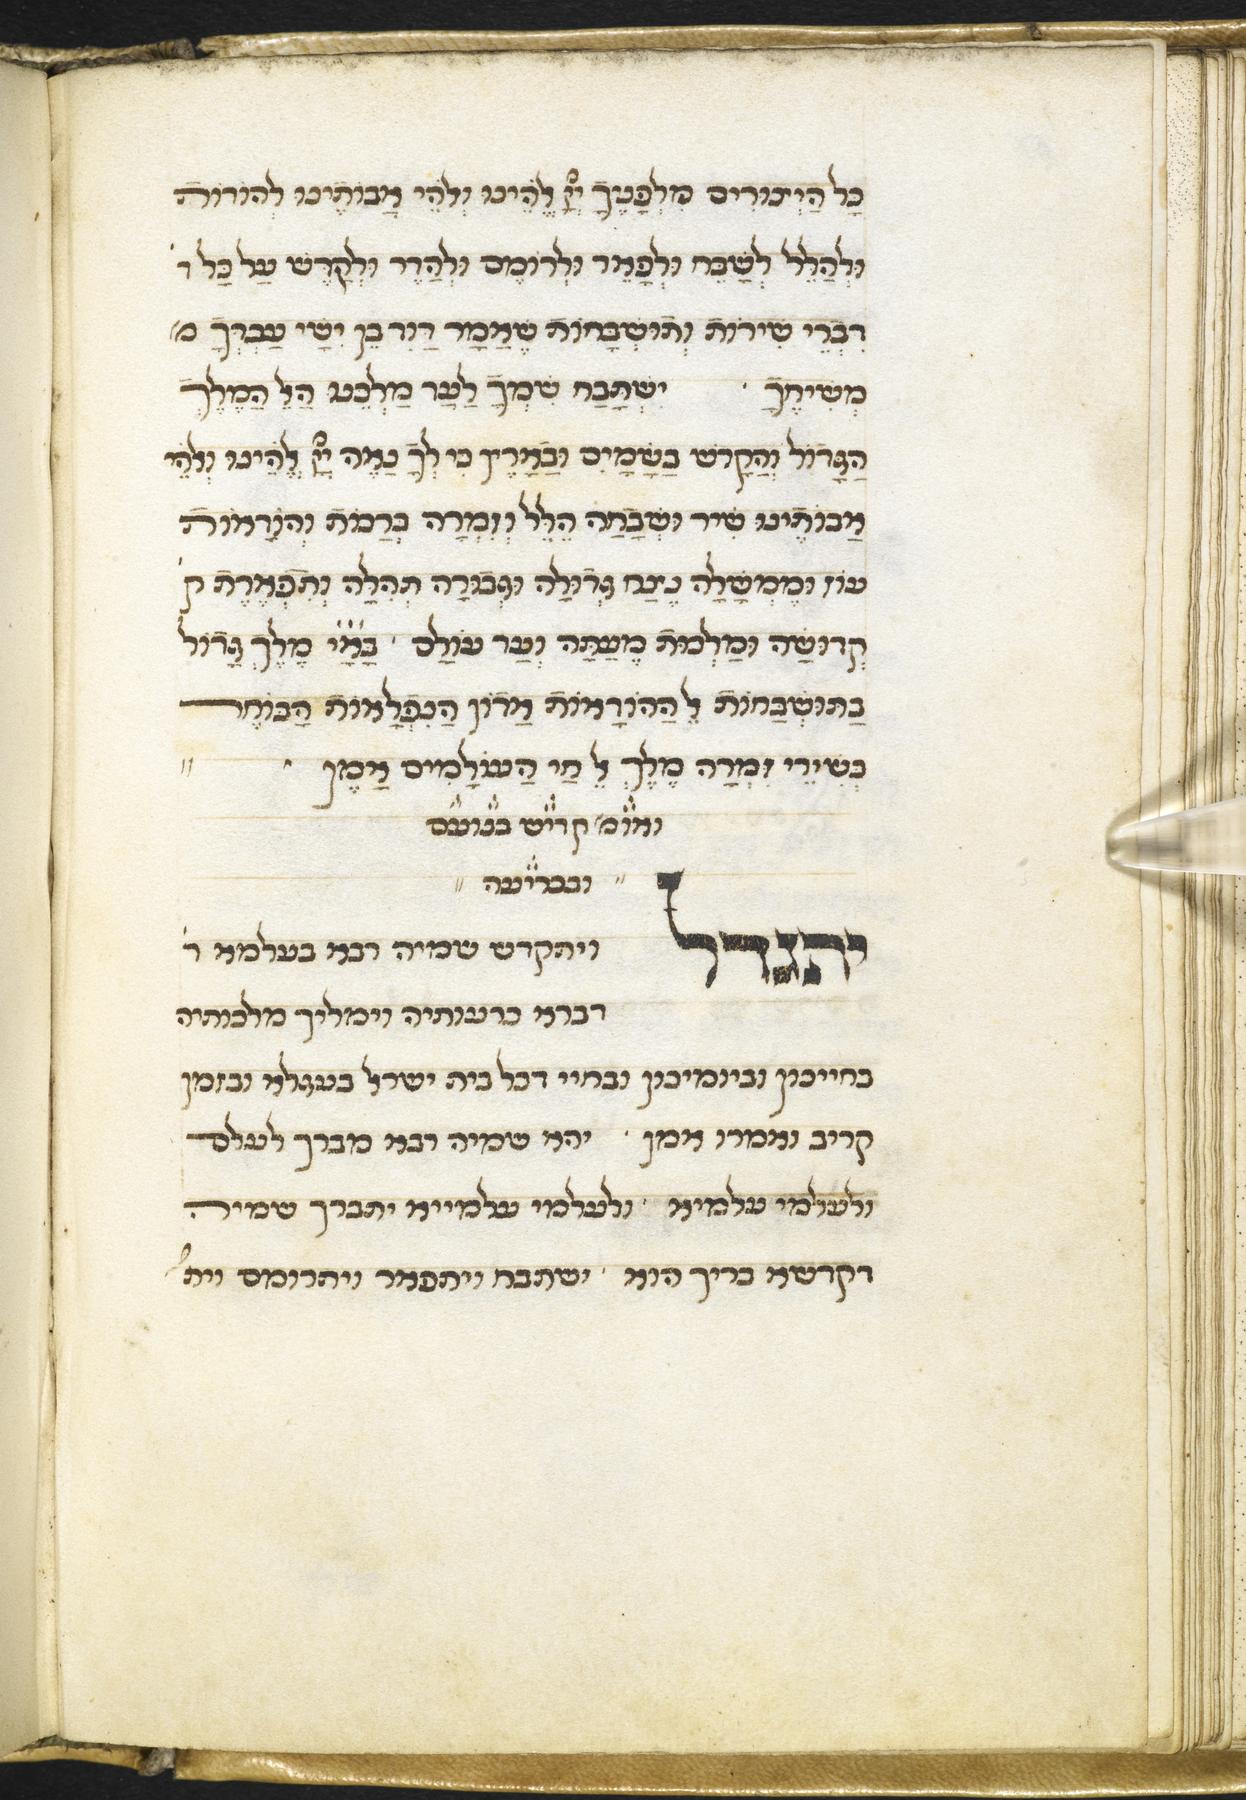 כָל הַיְיצוּרִים מִלְפָנֶיךָ יְיָ אֱלֹהֵינוּ וֵאלֹהֵי אֲבוֹתֵינוּ לְהוֹדוֹת
וּלְהַלֵל לְשַׁבֵחַ וּלְפָאֵר וּלְרוֹמֵם וּלְהַדֵר וּלְקַדֵשׁ עַל כָּל ד׳
דִבְרֵי שִׁירוֹת וְתוּשְׁבָּחוֹת שֶׁאָמַר דָוִד בֶן יִשַׁי עַבְדְךָ מ׳
מְשִׁיחֶךָ · יִשְׁתַּבַח שִׁמְךָ לָעַד מַלְכֵּנוּ הָאֵל הַמֶלֶךְ
הַגָּדוֹל וְהַקָדוֹשׁ בַּשָׁמַיִם וּבָאָרֶץ כִּי לְךָ נָאֶה יְיָ אֱלֹהֵינוּ וֵאלֹהֵי
אֲבוֹתֵינוּ שִׁיר וּשְׁבָחָה הַלֵל וְזִמְרָה בְּרָכוֹת וְהוֹדָאוֹת
עוֹז וּמֶמְשָׁלָה נֶצַח גְדוּלָה וּגְבוּרָה תְהִלָה וְתִפְאֶרֶת ק׳
קְדוּשָׁה וּמַלְכוּת מֵעַתָּה וְעַד עוֹלָם · בָּאָ״יְ מֶלֶךְ גָּדוֹל
בַתוּשְׁבָּחוֹת אֵל הַהוֹדָאוֹת אֲדוֹן הַנִפְלָאוֹת הַבּוֹחֵר
בְּשִׁירֵי זִמְרָה מֶלֶךְ אֵל חֵי הָעוֹלָמִים אָמֵן · ״
ואומ׳ קדיש בנועם
״ ובכריעה ״
יתגדל ויתקדש שמיה רבא בעלמא ד׳
דברא כרעותיה וימליך מלכותיה
בחייכון וביומיכון ובחיי דכל בית ישראל בעגלא ובזמן
קריב ואמרו אמן · יהא שמיה רבא מברך לעלם
ולעלמי עלמיא · ולעלמי עלמייא יתברך שמיה
דקדשא בריך הוא · ישתבח ויתפאר ויתרומם וית׳